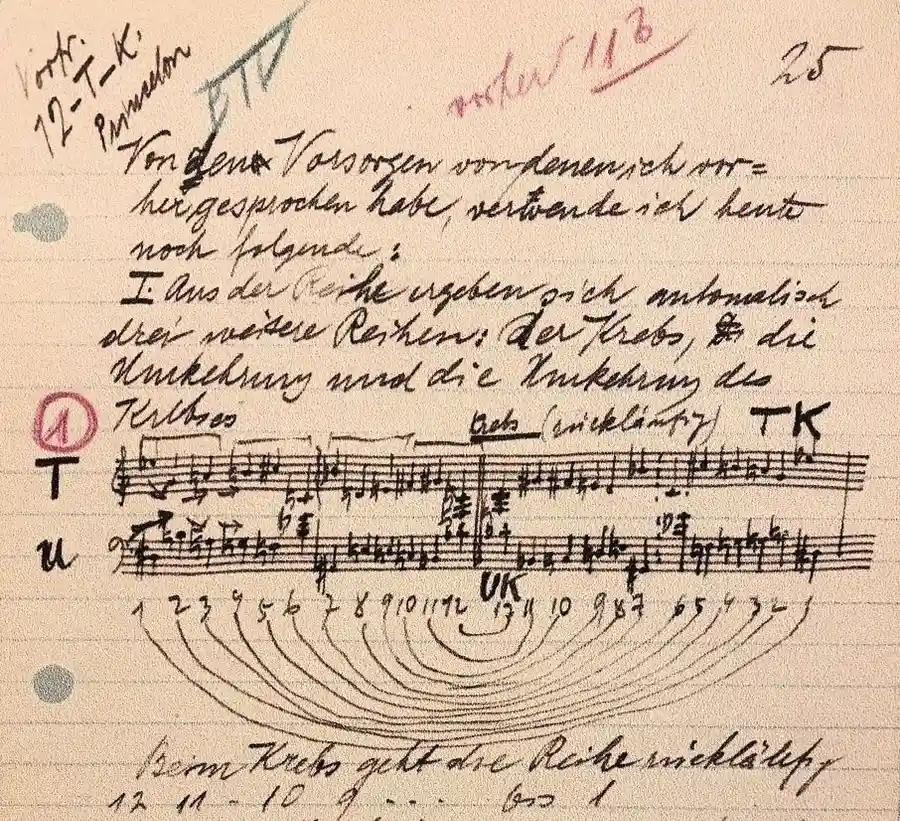 Vortr.
12-T-K.
Princeton
25
vorher 113
Von den Vorsorgen von denen ich vor=
her gesprochen habe, verwende ich heute
noch folgende:
I. Aus der Reihe ergeben sich automatisch
drei weitere Reihen: Der Krebs, die
Umkehrung und die Umkehrung des
Krebses
1
Krebs (rückläufig) TK
T
U
UK
1 2 3 4 5 6 7 8 9 10 11 12 12 11 10 9 8 7 6 5 4 3 2 1
Beim Krebs geht die Reihe rückläufig
12 11 - 10 9 . . . bis 1